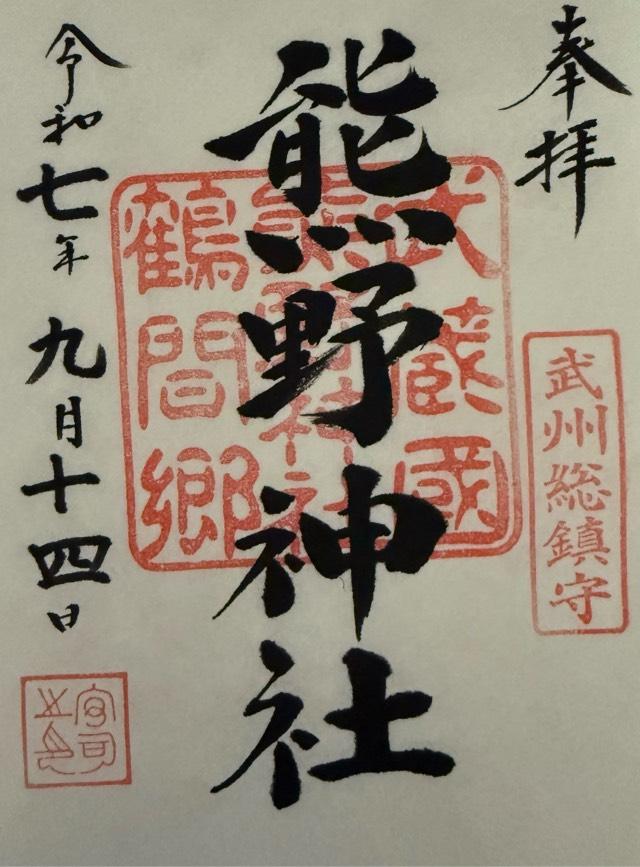 奉拝
武州総鎮守
熊野神社
武蔵國
熊野神社
鶴間郷
令和七年九月十四日
宮司之印